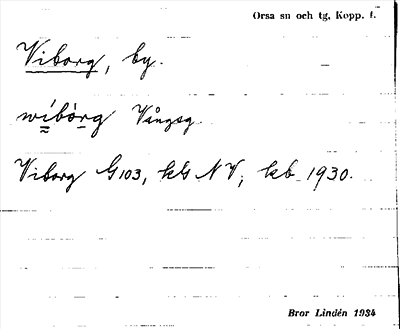 Orsa sn och tg, Kopp. l.
Viborg, by.
wíbòrg Vångsg.
Viborg G103, kG NV, kb 1930.
Bror Lindén 1934